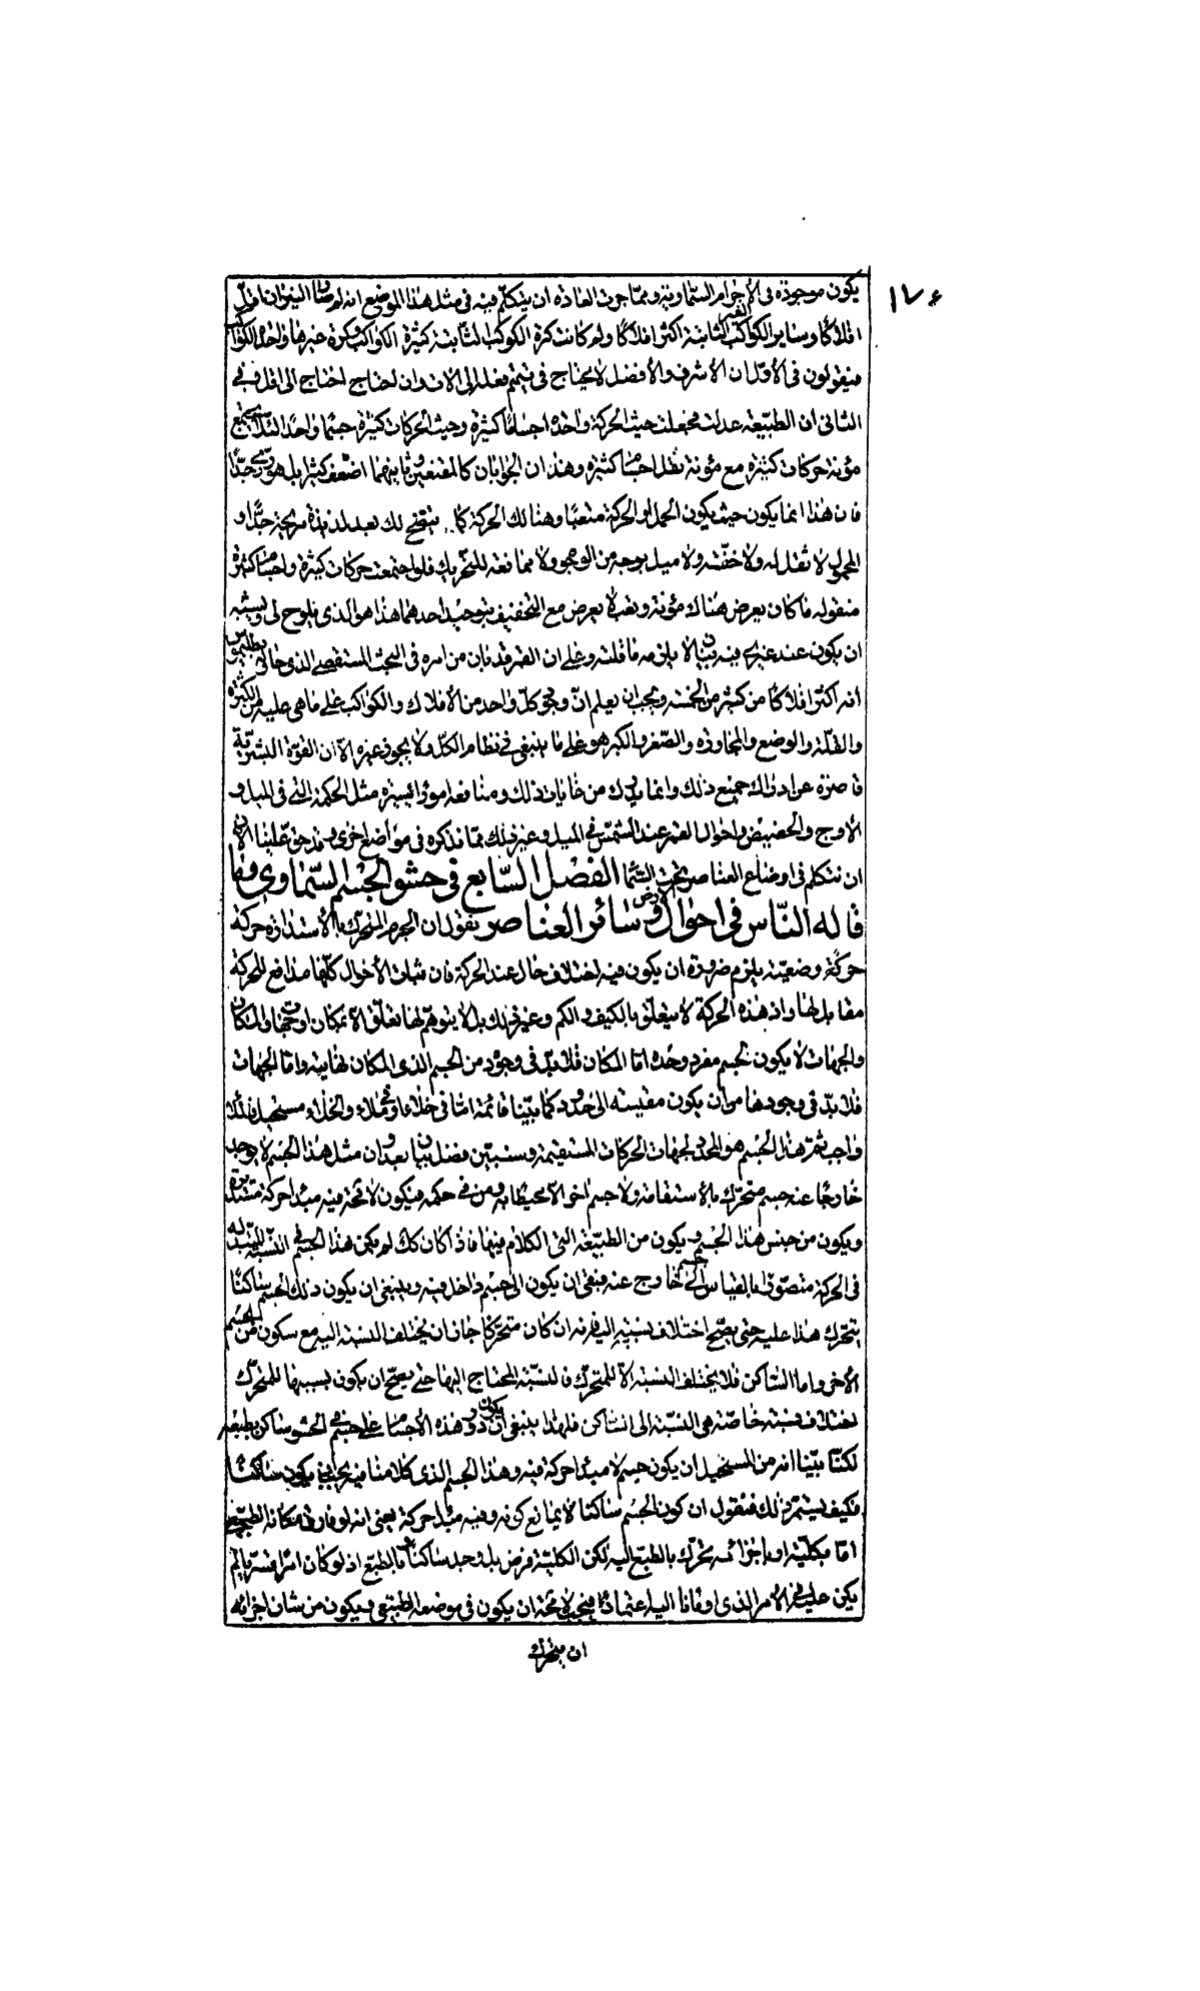 ١٧٤
يكون موجودة فى الأجرام السماوية ومما جرت العادة ان يتكلم فيه فى مثل هذا الموضع انه لم صار النيران اقل
افلاكا وساير الكواكب الغير الثابتة اكثر افلاكا ولم كانت كرة الكوكب الثابتة كثيرة الكواكب وكرة غيرها واحدة الكواكب
فيقولون فى الأول ان الأشرف والأفضل لا يحتاج فى تتميم فعله الى الات وان احتاج احتاج الى اقل وفى
الثانى ان الطبيعة عدلت فجعلت حيث الحركة واحدة اجساما كثيرة وحيث الحركات كثيرة جسما واحدا لئلا يجتمع
مؤنة حركات كثيرة مع مؤنة نقل اجسام كثيرة وهذان الجوابان كالمقنعين وثانيهما اضعف كثيرا بل هو ردى جدا
فان هذا انما يكون حيث يكون الحمل او الحركة متعبا وهنالك الحركة كما يتضح لك بعد لذيذة مريحة جدا و
المحمول لا ثقل له ولا خفة ولا ميل بوجه من الوجوه ولا ممانعة للتحريك فلو اجتمعت حركات كثيرة واجسام كثيرة
منقولة ما كان يعرض هناك مؤنة وتعب لا يعرض مع التخفيف بتوحيد احدهما هذا هو الذى يلوح لى ويشبه
ان يكون عند غيرى بيان لا يلزمه ما قلته وعلى ان القمر قد بان من امره فى البحث المستقصى الذى حاوله بطلميوس
انه اكثر افلاكا من كثير من الخمسة ويجب ان يعلم ان وجود كل واحد من الأفلاك والكواكب على ما هى عليه من الكثرة
والقلة والوضع والمجاورة والصغر والكبر هو على ما ينبغى فى نظام الكل ولا يجوز غيره الا ان القوة البشرية
قاصرة عن ادراك جميع ذلك وانما يدرك من غايات ذلك ومنافعه امورا يسيرة مثل الحكمة التى فى الميل و
الأوج والحضيض واحوال القمر عند الشمس فى الميل وغير ذلك مما نذكره فى مواضع اخرى وقد حق علينا الان
ان نتكلم فى اوضاع العناصر تحت السماء الفصل السابع فى حشو الجسم السماوى وما
قاله الناس فى احوال الارض وسائر العناصر نقول ان الجرم المتحرك بالأستدارة حركة
حركة وضعية يلزم ضرورة ان يكون فيه اختلاف حال عند الحركة فان ثبات الأحوال كلها مدافع للحركة
مقابل لها واذ هذه الحركة لا يتعلق بالكيف والكم وغير ذلك بل لا يتوهم لها تعلق الا بمكان او جهة والمكان
والجهات لا يكون لجسم مفرد وحده اما المكان فلا بد فى وجوده من الجسم الذى المكان نهايته واما الجهات
فلا بد فى وجودها من ان يكون مقيسة الى حدود كما بينا قائمة اما فى خلاء او فى ملاء والخلاء مستحيل فالملاء
واجب ثم هذا الجسم هو المحدد لجهات الحركات المستقيمة وسنبين فضل بيان بعد ان مثل هذا الجسم لا يوجد
خارجا عنه جسم متحرك بالأستقامة ولا جسم اخر الا محيطا به ومن فى حكمه فيكون لا محة فيه مبدأ حركة مستديرة
ويكون من جنس هذا الجسم ويكون من الطبيعة التى الكلام فيها فاذا كان كك لم يكن هذا الجسم فى النسبة المتبدلة له
فى الحركة متصورا بالقياس الى جسم خارج عنه فبقى ان يكون الى جسم داخل فيه وينبغى ان يكون ذلك الجسم ساكنا
يتحرك هذا عليه حتى يصح اختلاف نسبته اليه فانه ان كان متحركا جاز ان يختلف النسبة اليه مع سكون من الجسم
الأخر واما الساكن فلا يختلف النسبة الا للمتحرك فالنسبة المحتاج اليها حتى يصح ان يكون بسببها للمتحرك
اختلاف نسبة خاصة هى النسبة الى الساكن فلهذا ينبغى ان يكون دور هذه الأجسام على جسم فى الحشو ساكن بطبعه
لكنا بينا انه من المستحيل ان يكون جسم لا مبدأ حركة فيه وهذا الجسم الذى كلامنا فيه يجب ان يكون ساكنا
فكيف يستمر ذلك فنقول ان كون الجسم ساكنا لا يمانع كونه وفيه مبدأ حركة يعنى انه لو فارق مكانه الطبيعى
اما بكليته او باجزائه تحرك بالطبع اليه لكن الكلية فرض بل وجد ساكنا بالطبع اذ لو كان امرا قسريا لم
يكن عليه فى الأمر الذى اوقانا اليه اعتماد فيجب لا محة ان يكون فى موضعه الطبيعى ويكون من شان اجزائه
ان يتحرك